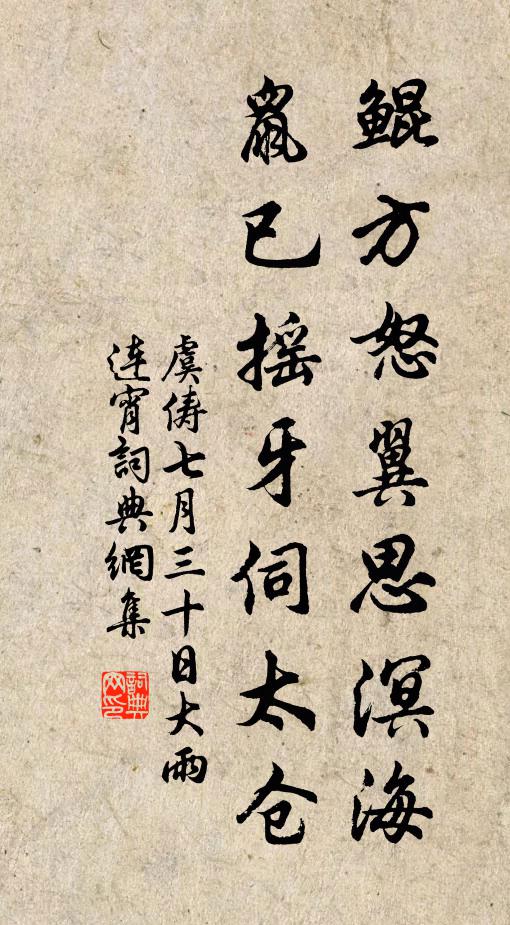 鲲方怒翼思溟海
鼠已摇牙伺太仓
虞俦七月三十日大雨
连宵詞典網集
詞典网印